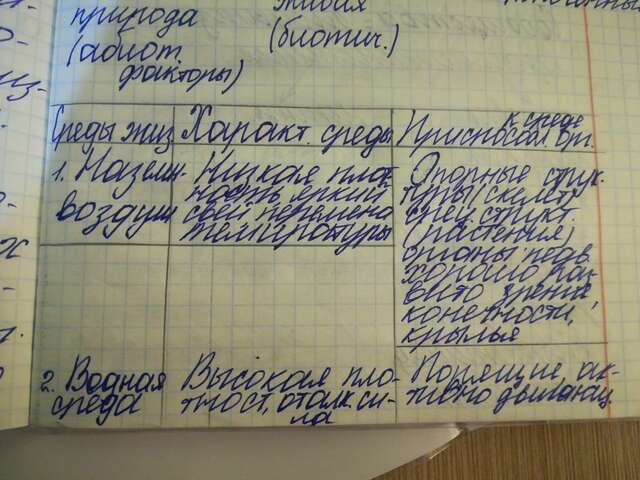 природа
живая
(абиот.
(биотич.)
факторы)
Среды жиз
Характ. среды
к среде
Приспособл. орг.
1. Наземн-
воздуш
Низкая плот
ность, яркий
свет, перемена
температуры
Опорные струк.
туры (скелет)
спец. структ.
(растения)
органы подв.
хорошо раз-
вито зрение,
конечности,
крылья
2. Водная
среда
Высокая пло-
тност, оталк. си-
ла
Порящие, ак-
тивно